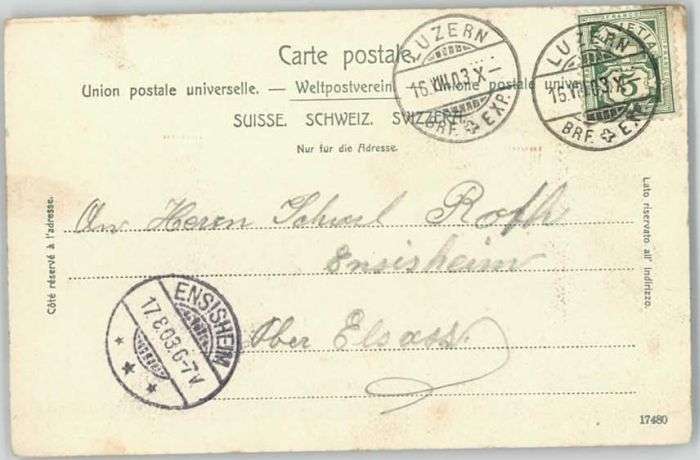 Carte postale.
Union postale universelle. — Weltpostverein. — Unione postale univer
SUISSE. SCHWEIZ. SVIZZERA.
Nur für die Adresse.
LUZERN
16.VIII.03.X
BRF. EXP.
LUZERN
16.VIII.03.X
BRF. EXP.
FRANCO
HELVETIA
5
Côté réservé à l'adresse.
Lato riservato all' indirizzo.
An Herrn Roth
Ensisheim
Ober Elsass.
ENSISHEIM
17.8.03.6-7V
17480